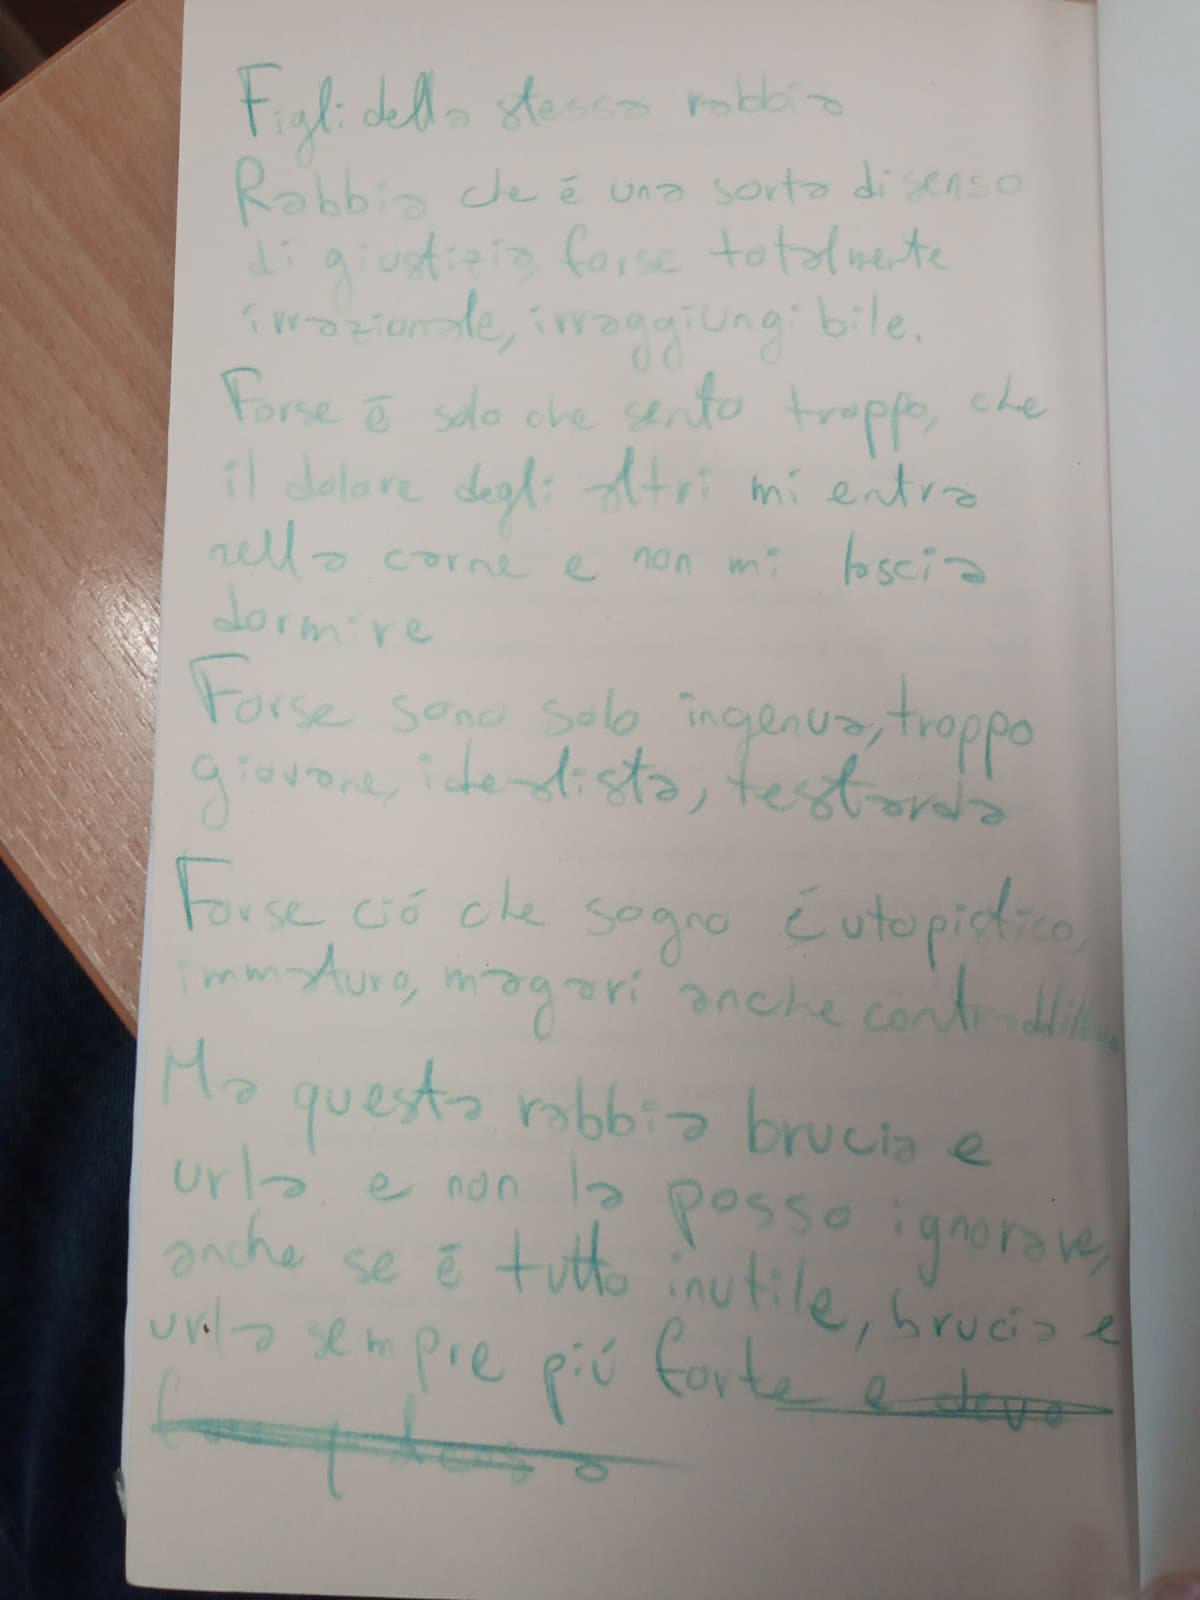 Figli della stessa rabbia
Rabbia che é una sorta di senso
di giustizia forse totalmente
irrazionale, irraggiungibile.
Forse é solo che sento troppo, che
il dolore degli altri mi entra
nella carne e non mi lascia
dormire
Forse sono solo ingenua, troppo
giovane, idealista, testarda
Forse ció che sogno é utopistico,
immaturo, magari anche
Ma questa rabbia brucia e
urla e non la posso ignorare,
anche se é tutto inutile, brucia e
urla sempre piú forte e devo